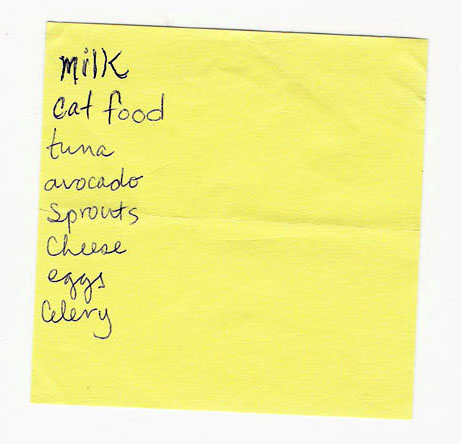 milk
cat food
tuna
avocado
sprouts
cheese
eggs
celery